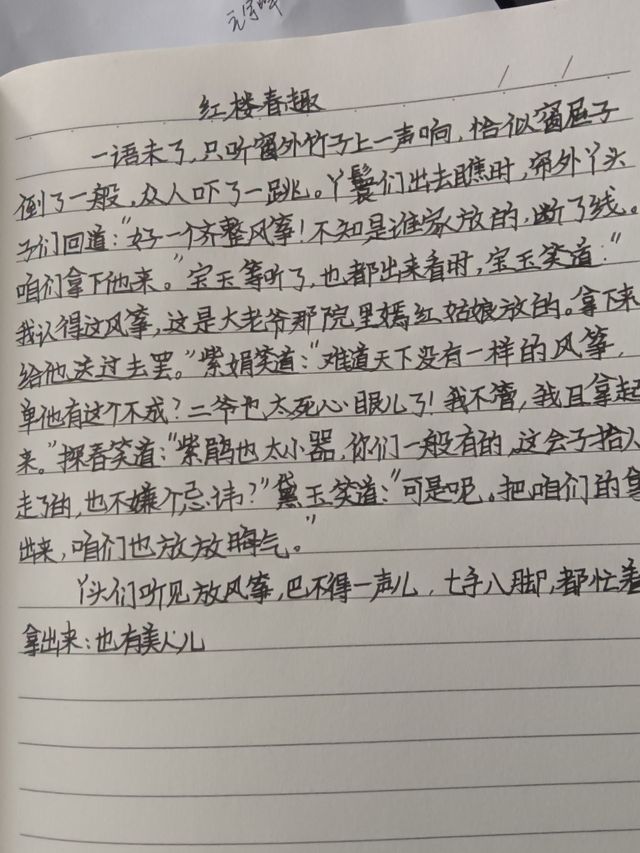 红楼春趣
一语未了，只听窗外竹子上一声响，恰似窗屉子
倒了一般，众人吓了一跳。丫鬟们出去瞧时，帘外丫头
子们回道：“好一个齐整风筝！不知是谁家放的，断了线。
咱们拿下他来。”宝玉等听了，也都出来看时，宝玉笑道：“
我认得这风筝，这是大老爷那院里嫣红姑娘放的。拿下来
给他送过去罢。”紫娟笑道：“难道天下没有一样的风筝，
单他有这个不成？二爷也太死心眼儿了！我不管，我且拿起
来。”探春笑道：“紫鹃也太小器，你们一般有的，这会子拾人
走了的，也不嫌个忌讳？”黛玉笑道：“可是呢。把咱们的拿
出来，咱们也放放晦气。”
丫头们听见放风筝，巴不得一声儿，七手八脚，都忙着
拿出来：也有美人儿